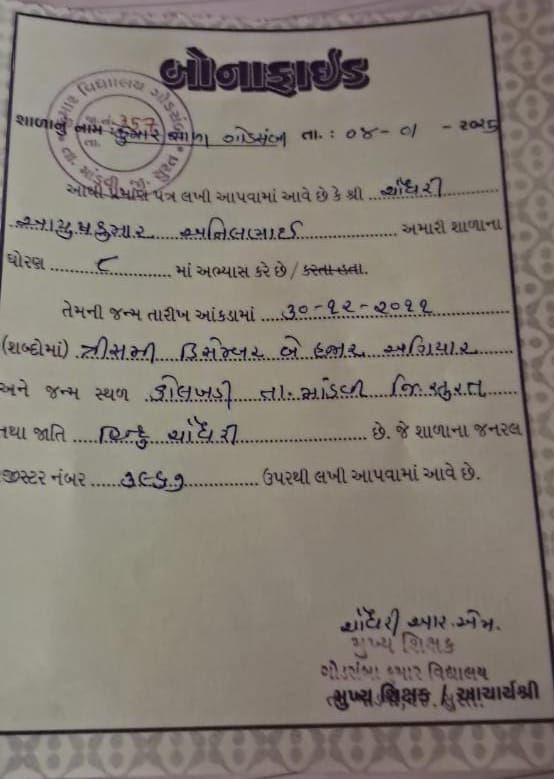 બોનાફાઈડ
કુમાર વિદ્યાલય ગોડસંબા
જા.નં. 357
તા.
તા. માંડવી જી. સુરત
શાળાનું નામ : કુમાર શાળા ગોડસંબા તા. : ૦૪-૦૧ - ૨૦૨૫
આથી પ્રમાણ પત્ર લખી આપવામાં આવે છે કે શ્રી ચૌધરી
આયુષકુમાર અનિલભાઈ અમારી શાળાના
ધોરણ ૮ માં અભ્યાસ કરે છે / કરતા હતા.
તેમની જન્મ તારીખ આંકડામાં ૩૦-૧૨-૨૦૧૧
(શબ્દોમાં) ત્રીસમી ડિસેમ્બર બે હજાર અગિયાર
અને જન્મ સ્થળ કોલખડી તા. માંડવી જિ. સુરત
તથા જાતિ હિન્દુ ચૌધરી છે. જે શાળાના જનરલ
જીસ્ટર નંબર ૩૯૬૭ ઉપરથી લખી આપવામાં આવે છે.
ચૌધરી આર. એમ.
મુખ્ય શિક્ષક
ગોડસંબા કુમાર વિદ્યાલય
મુખ્ય શિક્ષક / આચાર્યશ્રી